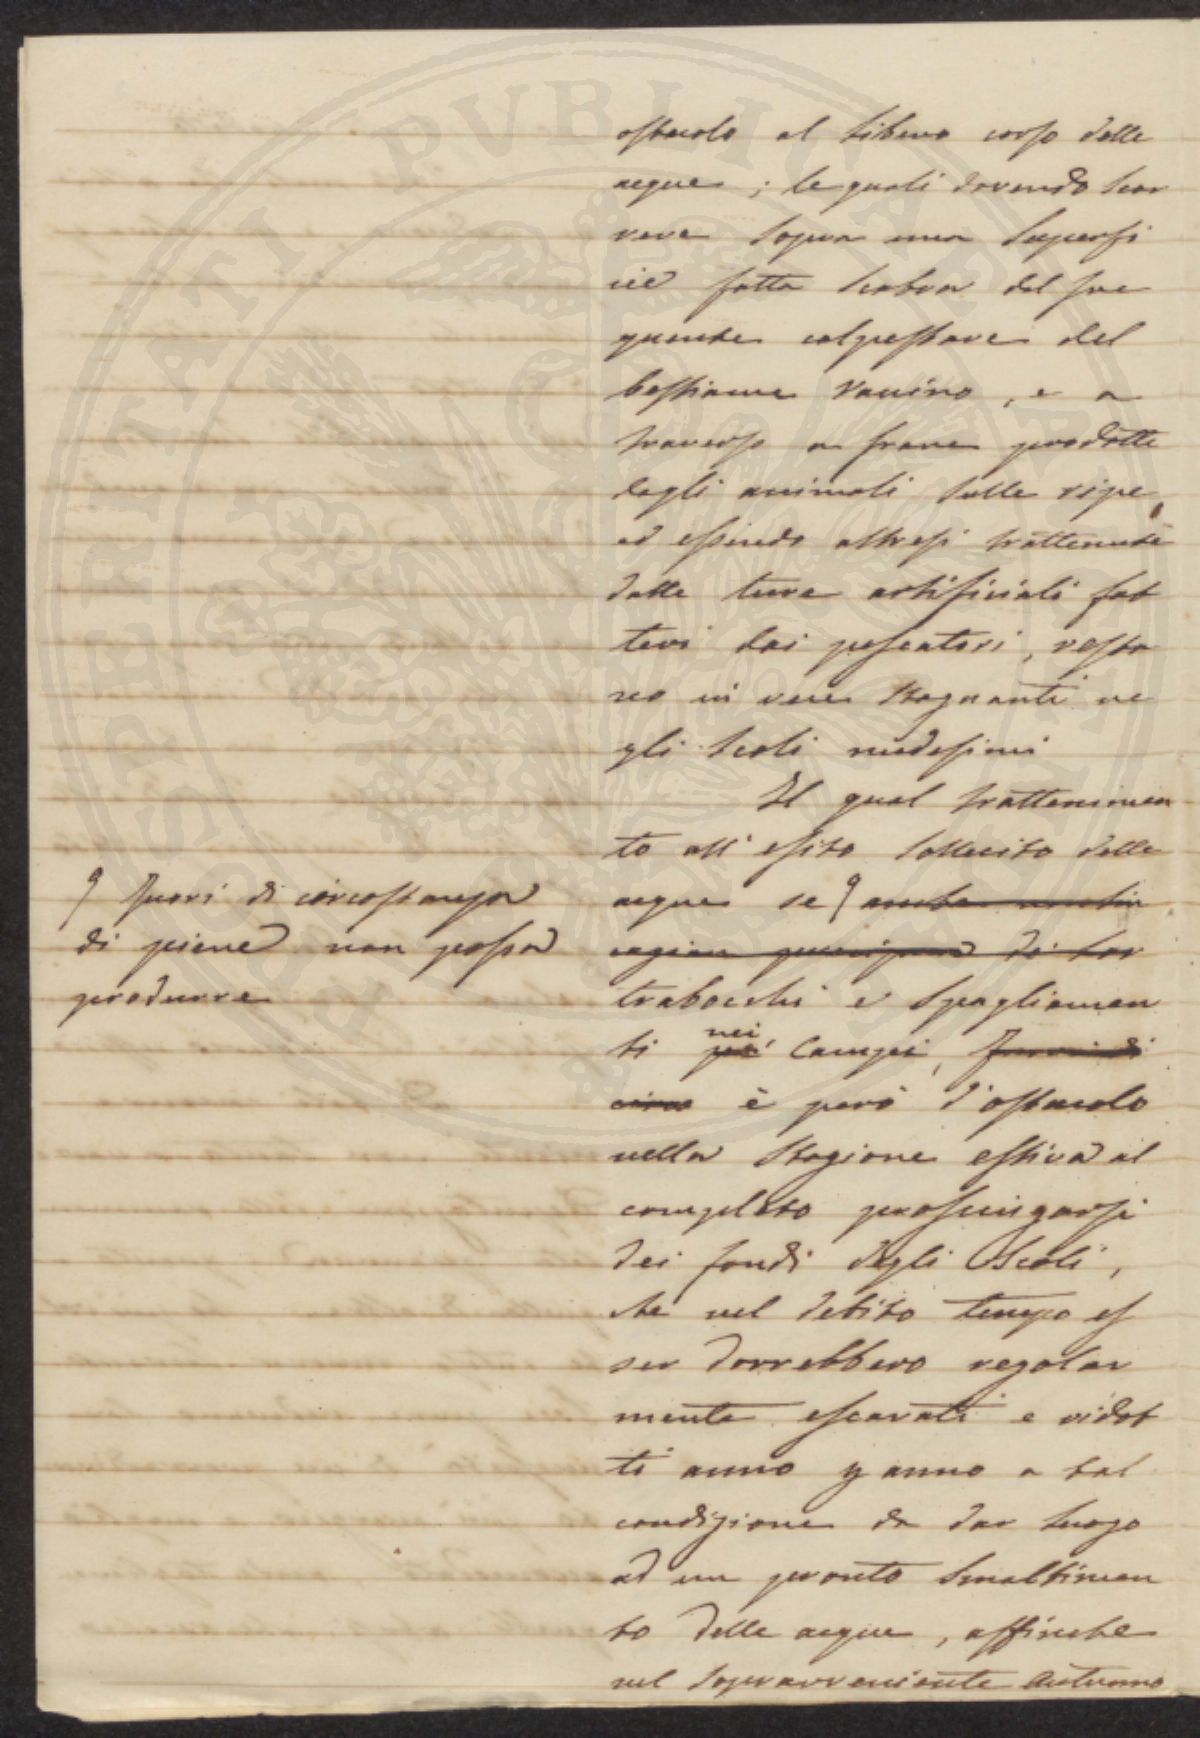 PROSPERITATI PVBLICAE AVGENDAE
ostacolo al libero corso delle
acque; le quali dovendo scor
rere sopra una superfi
cie fatta scabra dal fre
quente calpestare del
bestiame vaccino, e a
traverso a frane prodotte
dagli animali sulle ripe,
ed essendo altresì trattenute
dalle ture artificiali fat
tevi dai pescatori, resta
no in vece stagnanti ne
gli scoli medesimi
Il qual trattenimen
to all'esito sollecito delle
acque se
trabocchi e spagliamen
ti nei Campi, fuori di
circo è però d'ostacolo
nella stagione estiva al
completo prosciugarsi
dei fondi degli Scoli,
che nel debito tempo es
ser dovrebbero regolar
mente escavati e ridot
ti anno p anno a tal
condizione da dar luogo
ad un pronto smaltimen
to delle acque, affinche
nel sopravveniente Autunno
fuori di circostanza
di piene non possa
produrre